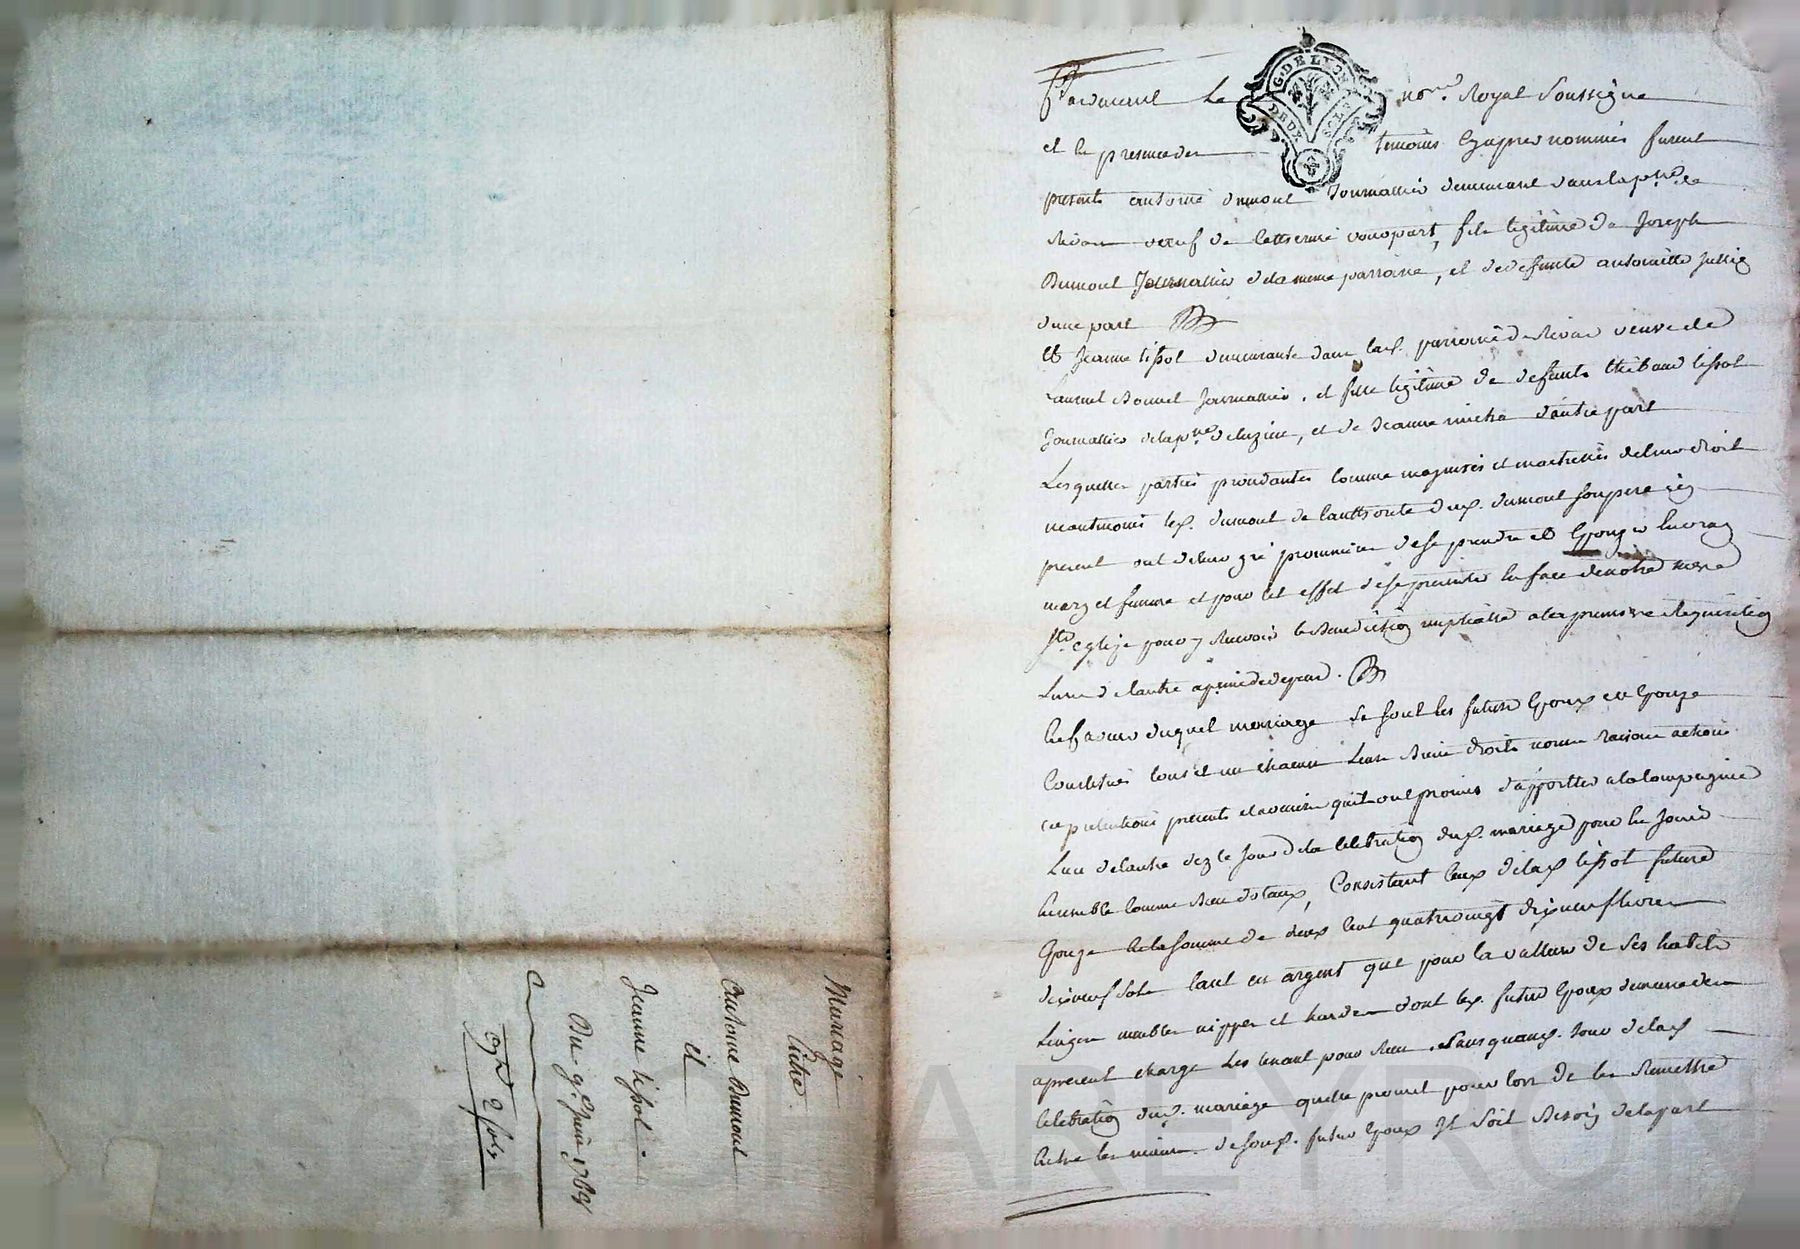 Pardevant Le nore. Royal Soussigne
et en presence des temoins Cyapres nommés furent
presents antoine dumont Journallier demeurant dans la psse. de
veuf de Catherine fils legitime de Joseph
Dumont Journallier de la meme parroisse, et de defunte antoinette
d'une part
Et Jeanne tissot demeurante dans lad. parroisse de veuve de
Laurent Bonnet Journallier, et fille legitime de defunts thibaud tissot
Journallier de la psse. de et de Jeanne d'autre part
Lesquelles parties procedantes comme majeures et maitresses de leurs droits
neantmoins led. dumont de lauthorité dud. dumont son pere icy
present ont de leur gré promis de se prendre et Epouzer en vray
mary et femme et pour cet effet de se presenter en face de notre mere
ste. eglize pour y Recevoir la Benediction nuptialle a la premiere Requisition
Lune de lautre a peine de depens.
En faveur duquel mariage Se sont les futurs Epoux et Epouze
Constitués tous et un chacun Leurs Biens droits noms raisons actions
et pretentions presents et avenir quils ont promis d'apporter a la Compagnie
Lun de lautre dez le Jour de la Celebration dud. mariage pour en Jouir
Ensemble Comme Biens dotaux, Consistant Ceux de lad. tissot future
Epouze En la somme de deux Cent quatrevingt dixneuf livres
dixneuf Sols tant en argent que pour la valleur de Ses habits
Linges meubles nippes et hardes dont led. futur Epoux demeure des
apresent chargé Les tenant pour Reçu Jour de lad.
Celebration dud. mariage quelle promet pour lors de les Remettre
Entre les mains de Sond. futur Epoux Et Soit Besoin de la part
Mariage
Entre
Antoine Dumont
et
Jeanne tissot
Du 9e. Juin 1769
2 sols
G. DE LYON
DEUX SOLS
CHAREYRO